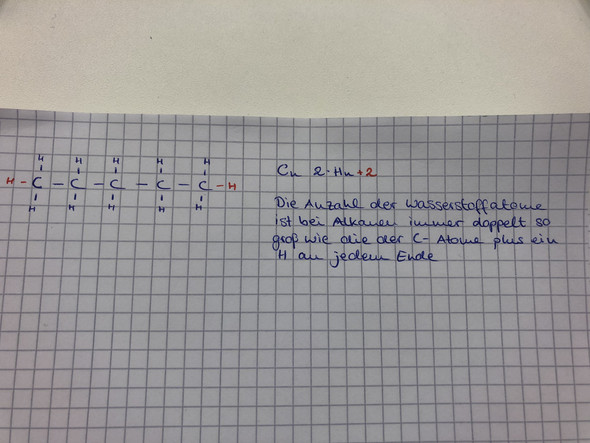 H H H H H
H - C - C - C - C - C - H
H H H H H
Cn 2·Hn+2
Die Anzahl der Wasserstoffatome
ist bei Alkanen immer doppelt so
groß wie die der C-Atome plus ein
H an jedem Ende